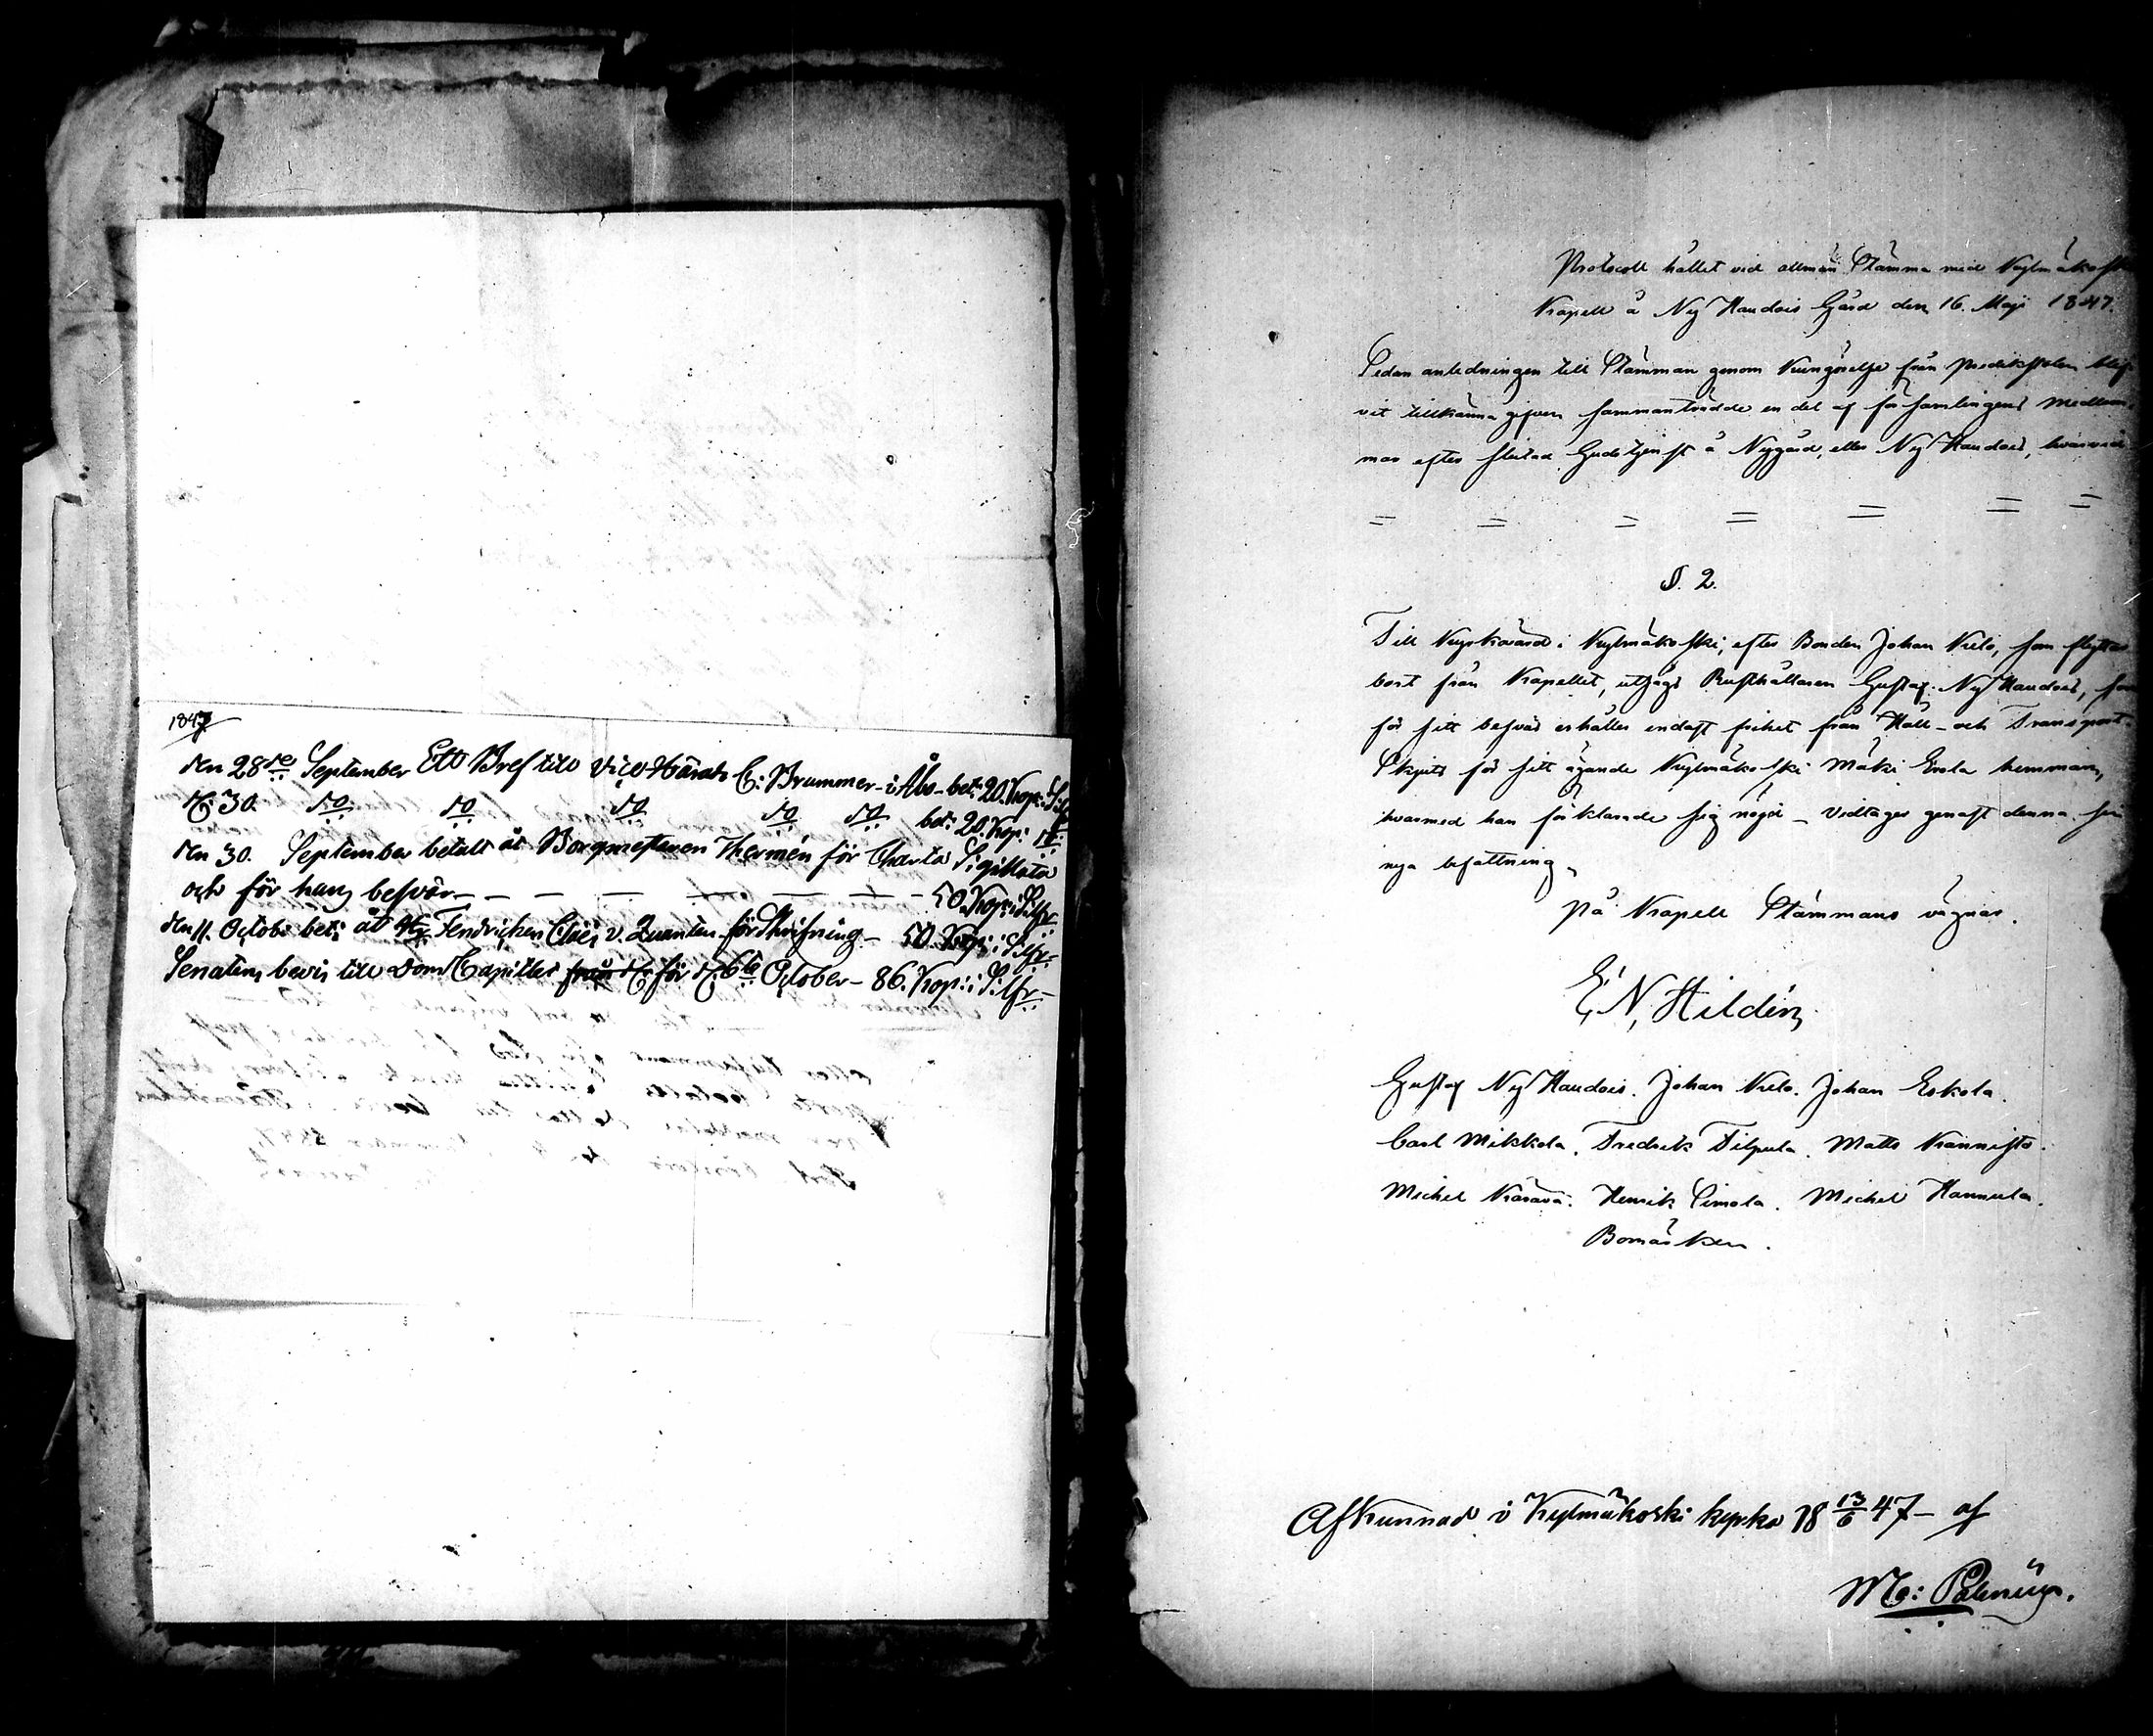 1847
den 28de September Ett Bref till Vice Härads C: Brummer i Åbo bet: 20. Kop: Silfr
d. 30. do do do do do bet: 20. Kop: do
den 30. September betalt åt Borgmestaren Thermén för Charta Sigillata
och för hans besvär — — — — — — 50. Kop: Silfr
den 11. Octobr bet: åt Fendricken Claës v. Quanten för Skrifning — 50. Kop: Silfr:
Senatens bevis till Dom Capitlet från för d. 6te October — 86. Kop: Silfr —
Protocoll hållet vid allmän Stämma med Kylmäkoski
Kapell å Ny Haudois Gård den 16. Maji 1847.
Sedan anledningen till Stämman genom Kungörelse från Predikstolen blif-
vit tillkänna gifven sammanträdde en del af församlingens Medlem-
mar efter slutad Gudstjenst å Nygård, eller Ny Haudois, hvarvid
= = = = = = =
§. 2.
Till Kyrkovärd i Kylmäkoski, efter Bonden Johan Kilo, som flyttar
bort från Kapellet, utsågs Rusthållaren Gustaf Ny Haudois, som
för sitt besvär erhåller endast frihet från Håll- och Transport-
Skjuts för sitt ägande Kylmäkoski Mäki Erola hemman,
hvarmed han förklarade sig nöjd — Vidtager genast denna sin
nya befattning.
På Kapell Stämmans vägnar.
E. N. Hildén
Gustaf Ny Haudois. Johan Kilo. Johan Eskola.
Carl Mikkola. Fredrik Tilpula. Matts Kannisto.
Michel Kärävä. Henrik Simola. Michel Hannula.
Bomärken.
Afkunnad i Kylmäkoski kyrka 18 13/6 47 — af